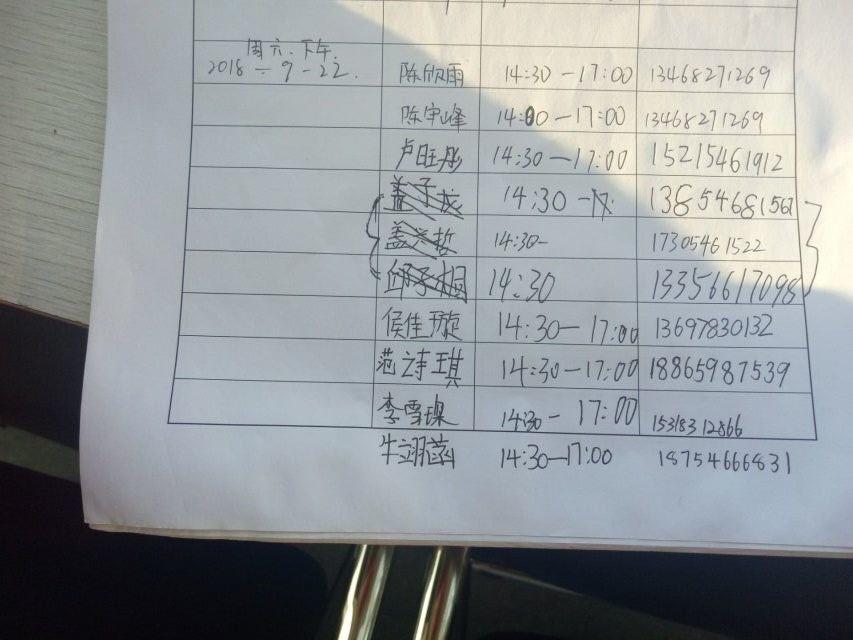 周六.下午.
2018-9-22. 陈欣雨 14:30-17:00 13468271269
陈宇峰 14:00-17:00 13468271269
卢旺彤 14:30-17:00 15215461912
盖子龙 14:30-17: 13854681562
盖 哲 14:30- 17305461522
邱子桐 14:30 13356617098
侯佳璇 14:30-17:00 13697830132
范诗琪 14:30-17:00 18865987539
李雪 14:30-17:00 15318312866
牛翊菡 14:30-17:00 18754666831